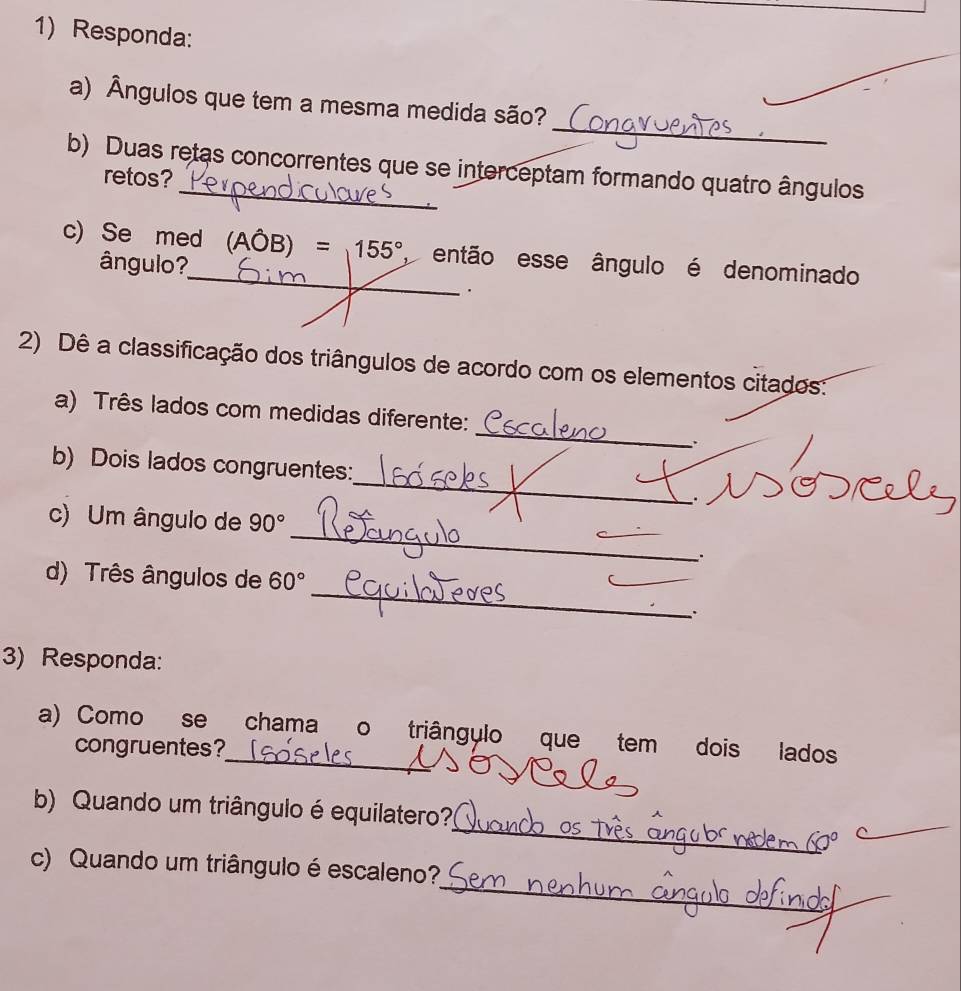 1) Responda:
a) Ângulos que tem a mesma medida são? Congruentes.
b) Duas retas concorrentes que se interceptam formando quatro ângulos
retos? Perpendiculares.
c) Se med (AÔB) = 155°, então esse ângulo é denominado
ângulo? Sim.
2) Dê a classificação dos triângulos de acordo com os elementos citados:
a) Três lados com medidas diferente: escaleno.
b) Dois lados congruentes: Isóseles. isósceles
c) Um ângulo de 90° Retângulo.
d) Três ângulos de 60° equilateres.
3) Responda:
a) Como se chama o triângulo que tem dois lados
congruentes? Isóseles isósceles
b) Quando um triângulo é equilatero? Quando os três ângulos medem 60°
c) Quando um triângulo é escaleno? Sem nenhum ângulo definido